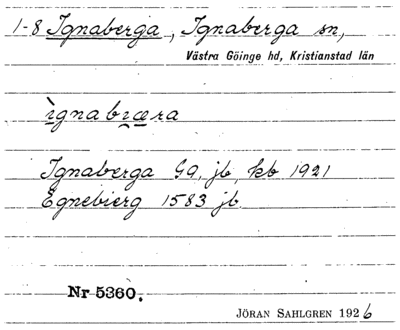 1-8 Ignaberga, Ignaberga sn,
Västra Göinge hd, Kristianstad län
ìgnabiæra
Ignaberga Ga, jb, kb 1921
Egnebierg 1583 jb.
Nr 5360.
JÖRAN SAHLGREN 1926